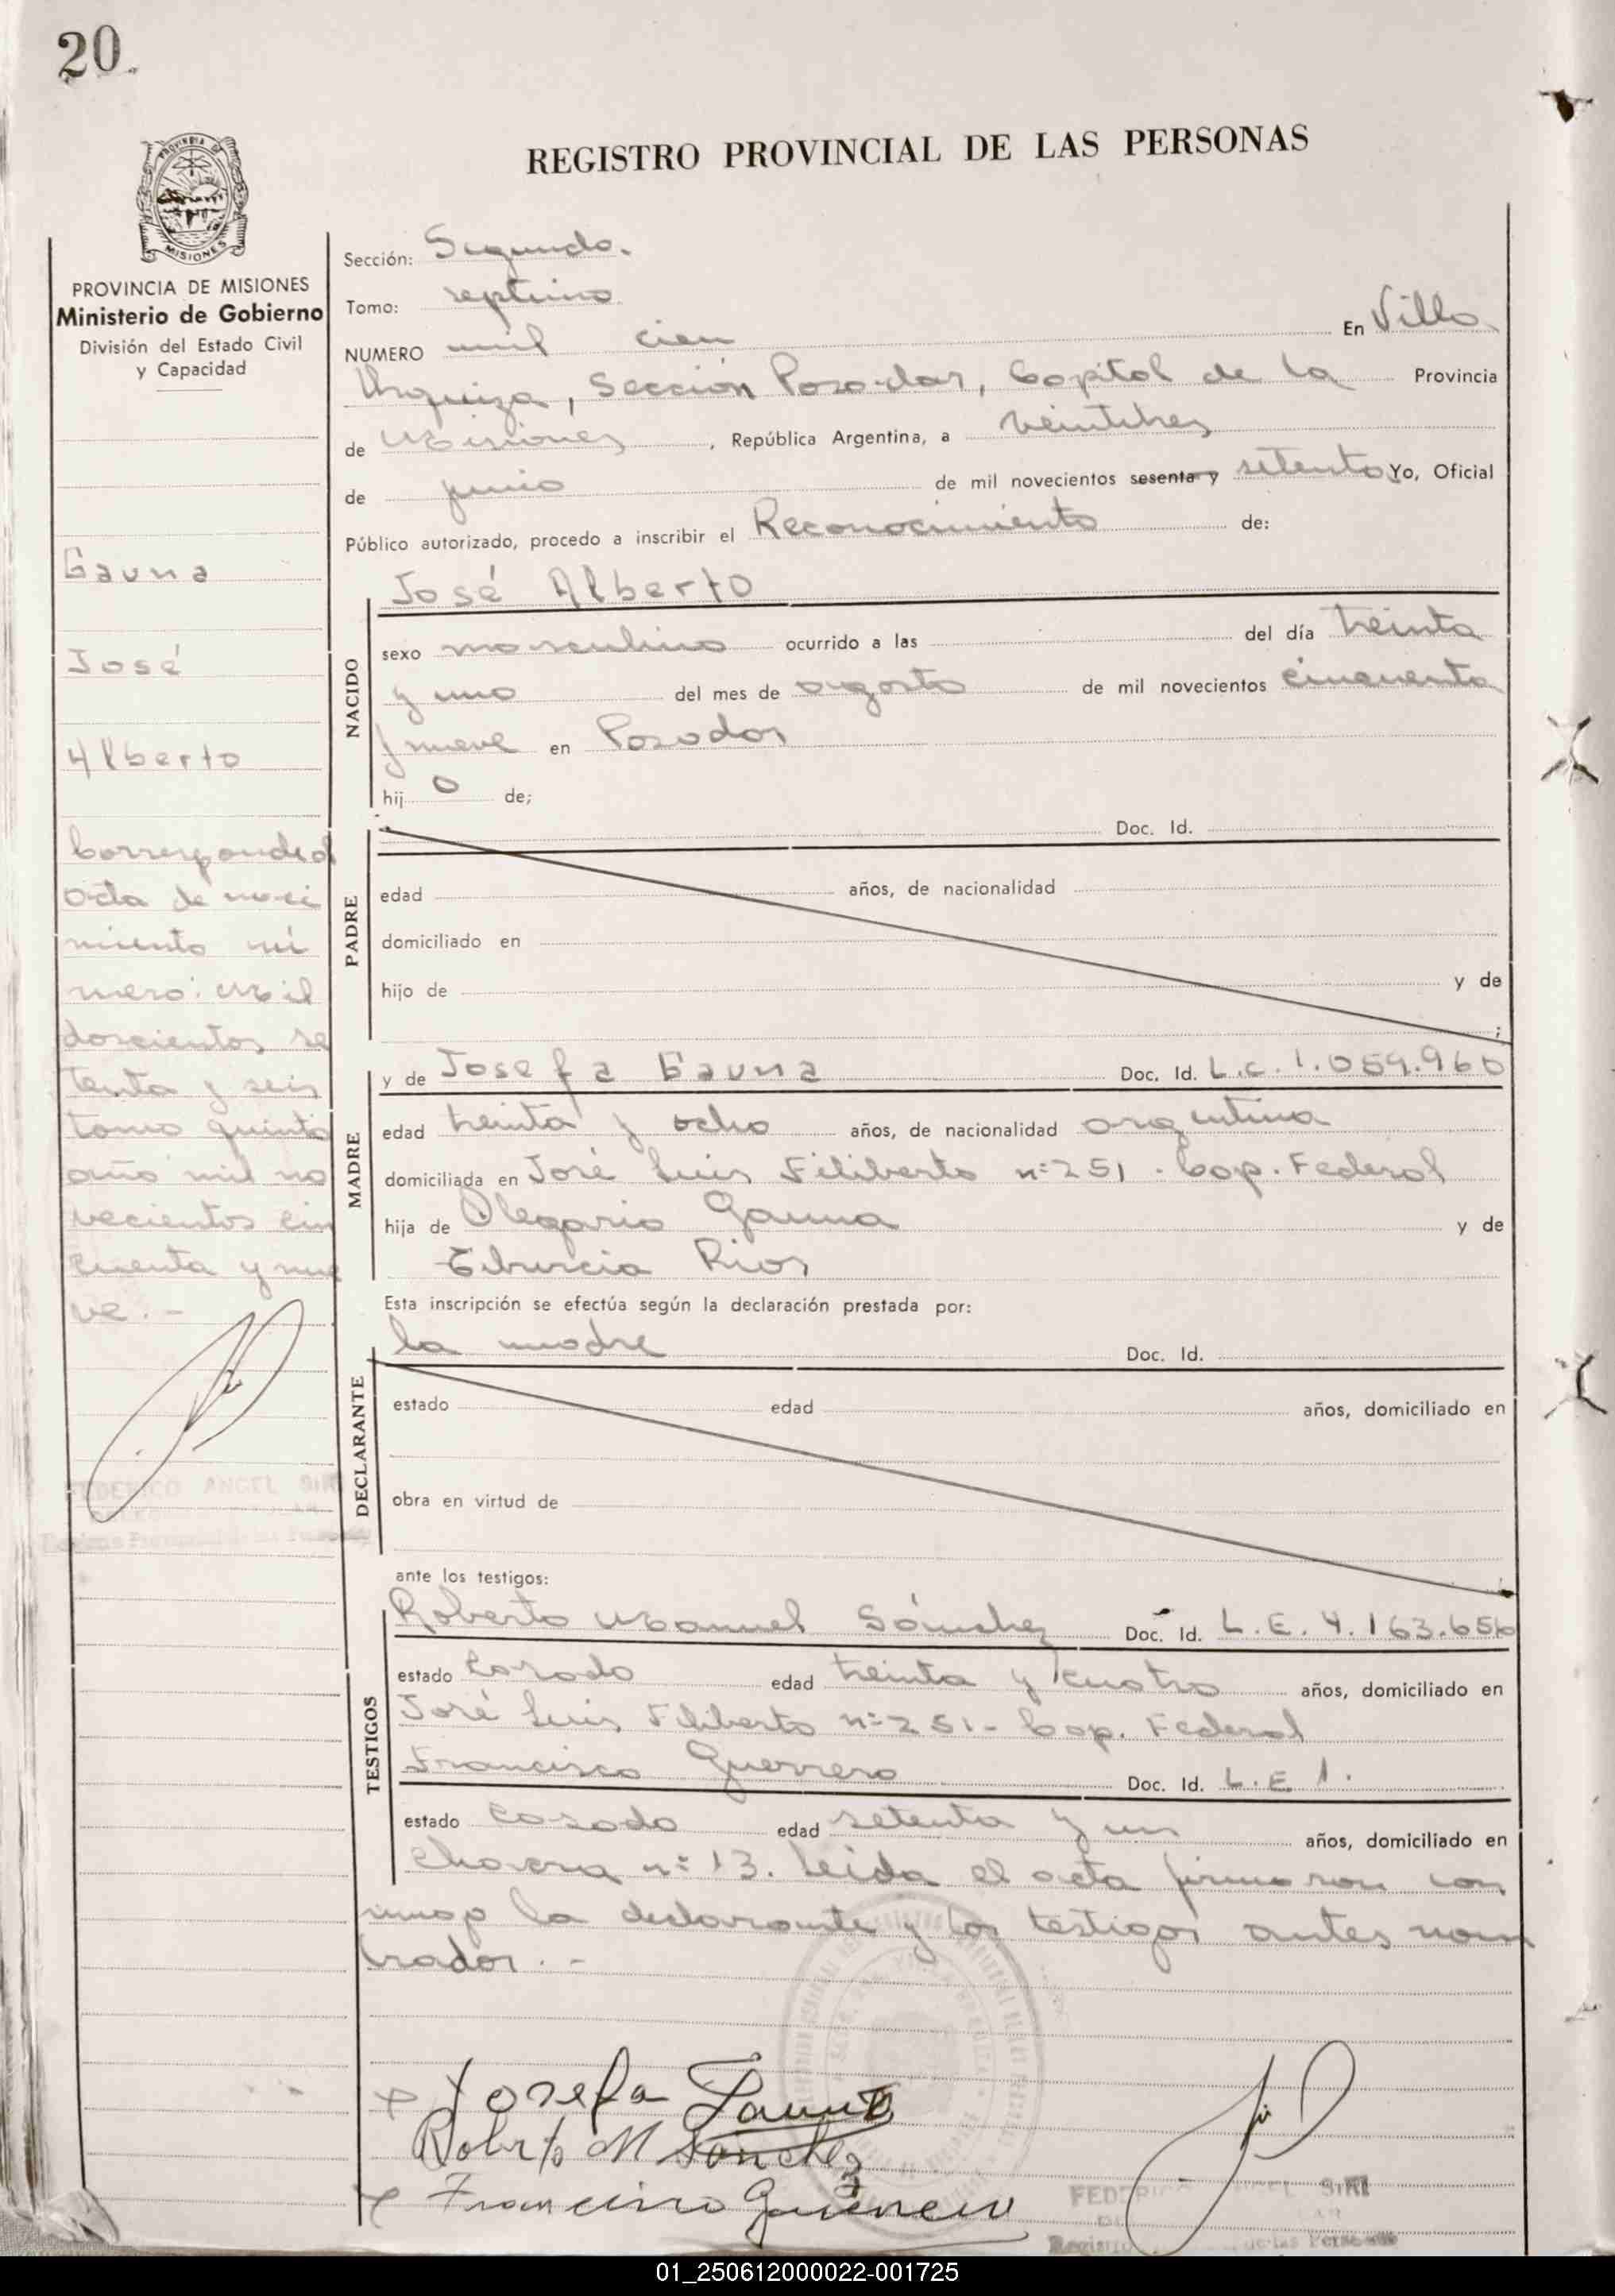 20
REGISTRO PROVINCIAL DE LAS PERSONAS
PROVINCIA DE MISIONES
Ministerio de Gobierno
División del Estado Civil
y Capacidad
Gauna
José
Alberto
Corresponde al
acta de naci
miento nú
mero: Mil
doscientos se
tenta y seis
tomo quinto
año mil no
vecientos cin
cuenta y nue
ve.-
FEDERICO ANGEL SIRI
Sección: Segunda.
Tomo: septimo
NUMERO mil cien En Villa
Urquiza, Sección Posadas, Capital de la Provincia
de Misiones, República Argentina, a veintitres
de junio de mil novecientos sesenta y setenta Yo, Oficial
Público autorizado, procedo a inscribir el Reconocimiento de:
NACIDO
José Alberto
sexo masculino ocurrido a las del día treinta
y uno del mes de agosto de mil novecientos cincuenta
y nueve en Posadas
hij o de;
PADRE
Doc. Id.
edad años, de nacionalidad
domiciliado en
hijo de y de
;
MADRE
y de Josefa Gauna Doc. Id. L.C. 1.059.960
edad treinta y ocho años, de nacionalidad argentina
domiciliada en José Luis Filiberto n° 251 - Cap. Federal
hija de Olegario Gauna y de
Tiburcia Rios
Esta inscripción se efectúa según la declaración prestada por:
DECLARANTE
la madre Doc. Id.
estado edad años, domiciliado en
obra en virtud de
ante los testigos:
TESTIGOS
Roberto Manuel Sánchez Doc. Id. L.E. 4.163.656
estado casado edad treinta y cuatro años, domiciliado en
José Luis Filiberto n° 251 - Cap. Federal
Francisco Guerrero Doc. Id. L.E 1.
estado casado edad setenta y un años, domiciliado en
n° 13. Leída el acta firmaron con
migo la declarante y los testigos antes nom
brados.-
Josefa Gauna
Roberto M Sanchez
Francisco Guerrero
FEDERICO ANGEL SIRI
01_250612000022-001725